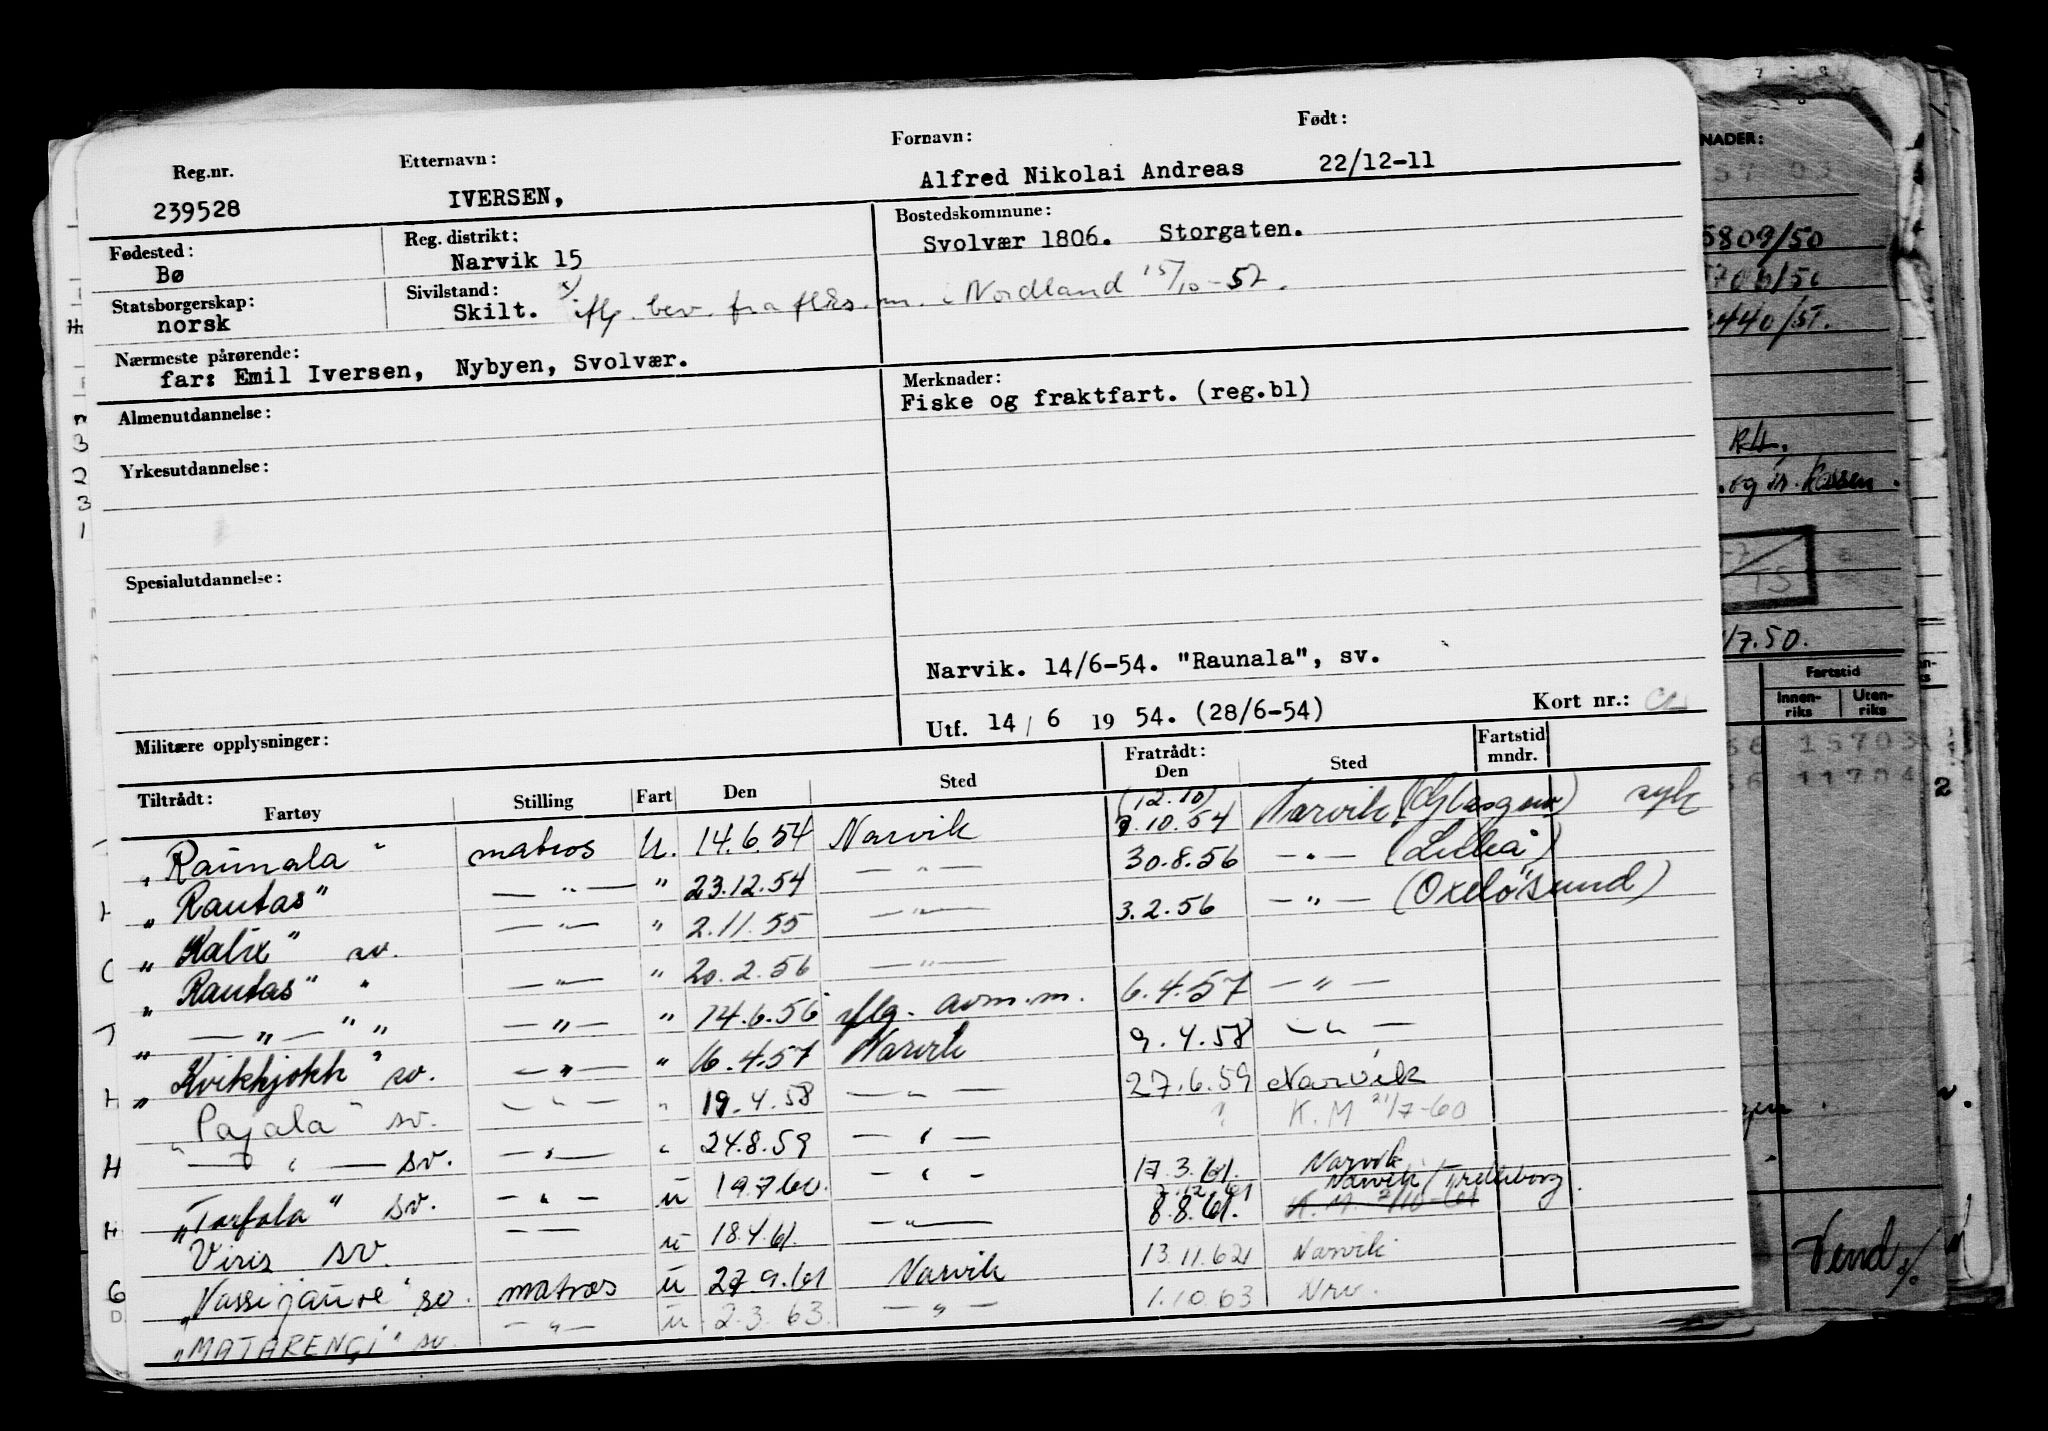 Reg.nr. Etternavn: Fornavn: Født:
239528 IVERSEN, Alfred Nikolai Andreas 22/12-11
Fødested: Reg. distrikt: Bostedskommune:
Bø Narvik 15 Svolvær 1806. Storgaten.
Statsborgerskap: Sivilstand:
norsk Skilt. x) iflg. bev. fra flks. m. i Nordland 15/10-57.
Nærmeste pårørende:
far: Emil Iversen, Nybyen, Svolvær.
Merknader:
Fiske og fraktfart. (reg.bl)
Almenutdannelse:
Yrkesutdannelse:
Spesialutdannelse:
Narvik. 14/6-54. "Raunala", sv.
Utf. 14 / 6 19 54. (28/6-54) Kort nr.:
Militære opplysninger:
Tiltrådt: Fratrådt: Fartstid mndr.
Fartøy Stilling Fart Den Sted Den Sted
„Raunala" matros U. 14.6.54 Narvik (12.10) 9.10.54 Narvik (Glasgow) syk
„Rautas" — " — " 23.12.54 — " — 30.8.56 — " — (Luleå)
„Kalix" sv. — " — " 2.11.55 — " — 3.2.56 — " — (Oxelösund)
„Rautas" " — " — " 20.2.56 — " —
„ — " — " " — " — " 14.6.56 iflg. avm.m. 6.4.57 — " —
„Kvikkjokk" sv. — " — " 16.4.57 Narvik 9.4.58 — " —
„Pajala" sv. — " — " 19.4.58 — " — 27.6.59 Narvik
— " — sv. — " — " 24.8.59 — " — ? K.M 21/7-60
„Torfala" sv. — " — u 19.7.60. — " — 17.3.61. Narvik
Viris sv. — — u 18.4.61. — " — 8.8.61. Narvik/Trelleborg.
„Vassijaure" sv. matros u 27.9.61 Narvik 13.11.62 Narvik
„MATARENGI" sv. — " — u 2.3.63. — " — 1.10.63 Nrv.
NADER:
5809/50
440/51.
. og tr. kassen.
/7.50.
Fartstid
Innen-riks Uten-riks
15703
11704
2
Vend %